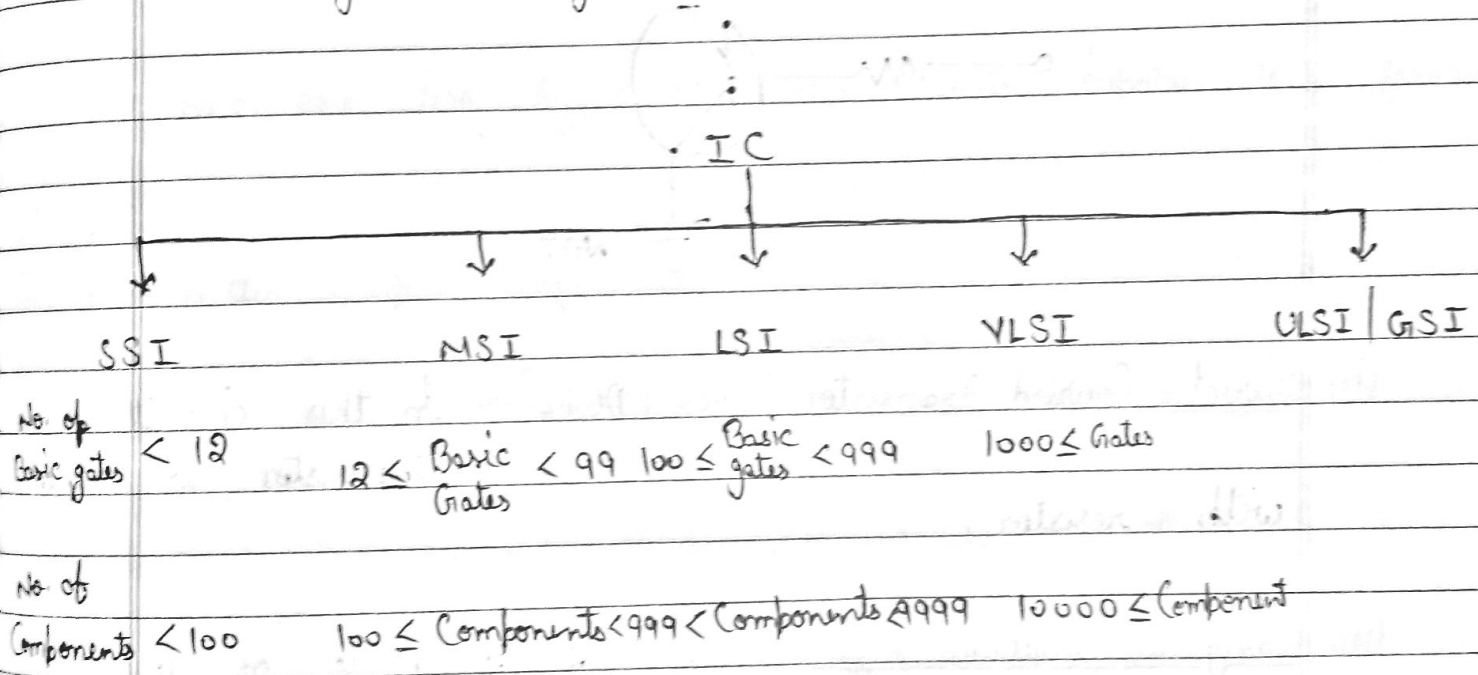 IC
SSI MSI LSI VLSI ULSI | GSI
No. of
Basic gates < 12 12 ≤ Basic Gates < 99 100 ≤ Basic gates < 999 1000 ≤ Gates
No. of
Components < 100 100 ≤ Components < 999 < Components < 9999 10000 ≤ Component